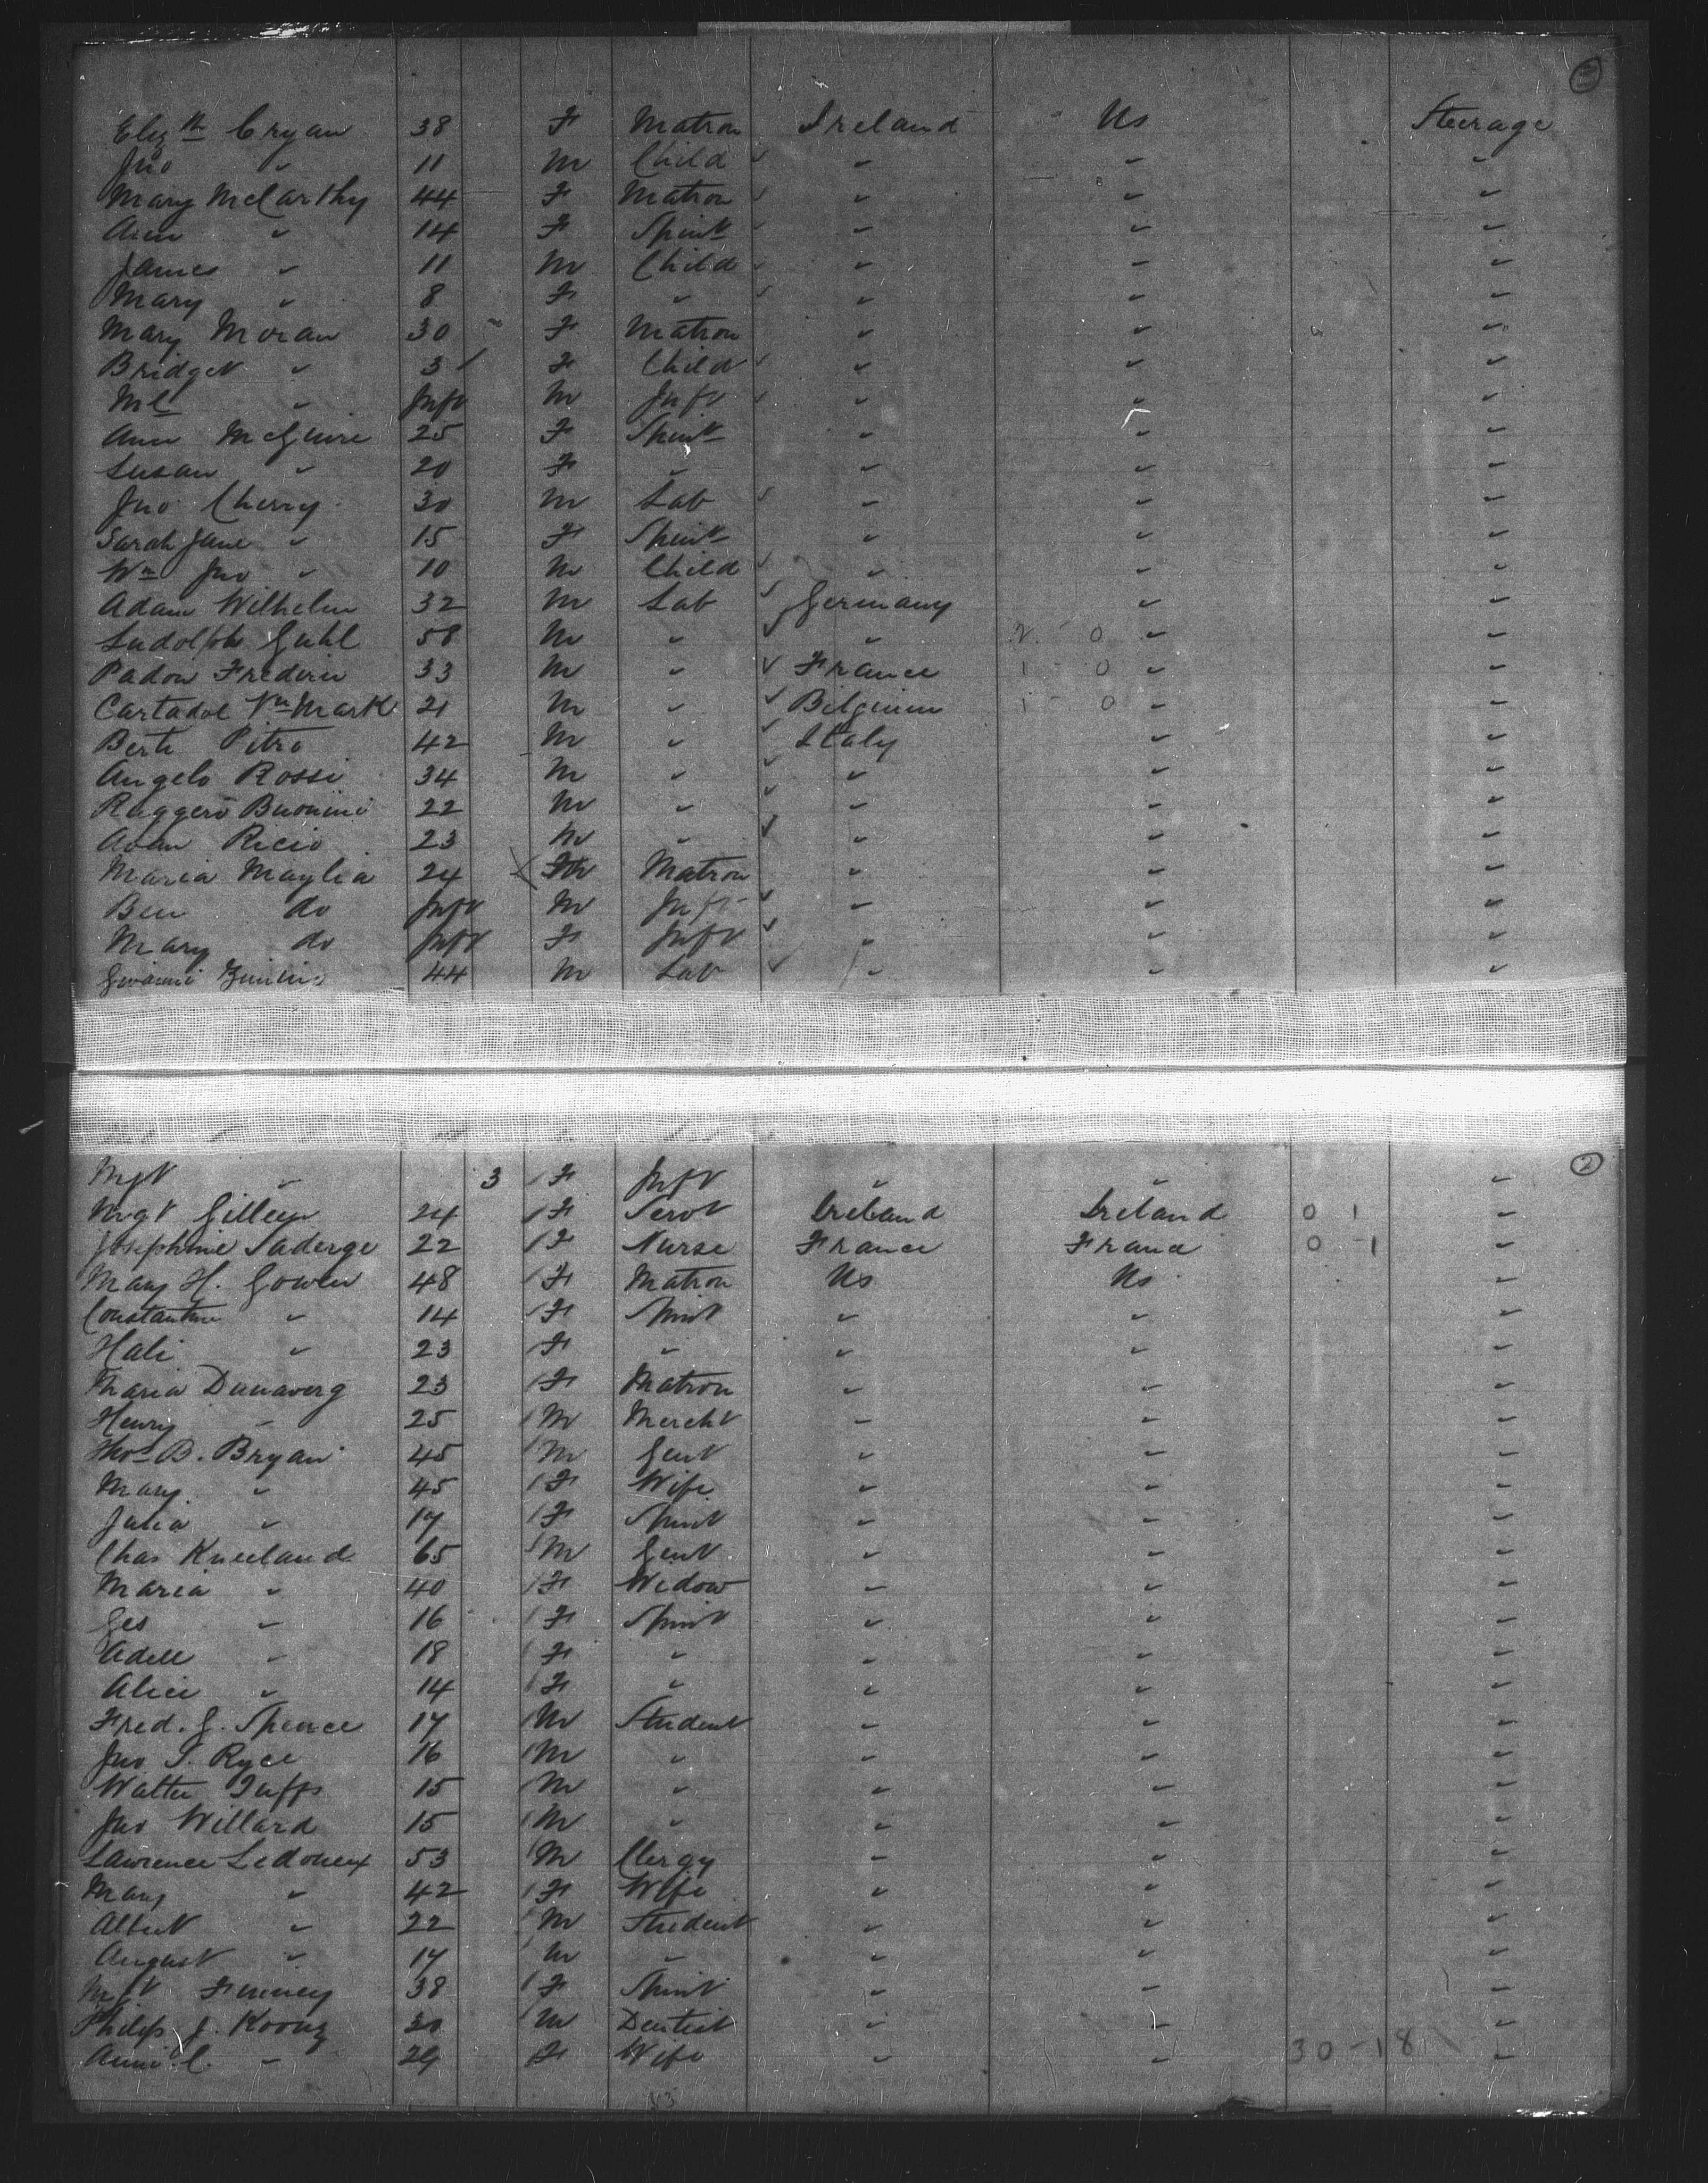 Elizth Cryan 38 F Matron Ireland Us Steerage
Jno " 11 M Child " " "
Mary McCarthy 44 F Matron " " "
Ann " 14 F Spinr " " "
James " 11 M Child " " "
Mary " 8 F " " " "
Mary Moran 30 F Matron " " "
Bridget " 3 F Child " " "
Ml " Inft M Inft " " "
Ann McGuire 25 F Spinr " " "
Susan " 20 F " " " "
Jno Cherry 30 M Lab " " "
Sarah Jane " 15 F Spinr " " "
Wm Jno " 10 M Child " " "
Adam Wilhelm 32 M Lab Germany " "
Ludolph Guhl 58 M " " 2 - 0 " "
Padon Frederic 33 M " France 1 - 0 " "
Cartadol Vn Mark 21 M " Bilgium 1 - 0 " "
Berti Pitro 42 M " Italy " "
Angelo Rossi 34 M " " " "
Ruggero Buonini 22 M " " " "
Adam Ricio 23 M " " " "
Maria Maylia 24 F Matron " " "
Ben do Inft M Inft " " "
Mary do Inft F Inft " " "
44 M Lab " " "
2
Mgt " 3 F Inft " " "
Mgt Gilleen 24 F Servt Ireland Ireland 0 1 "
Josephine Saderge 22 F Nurse France France 0 1 "
Mary H. Gowen 48 F Matron Us Us "
Constantine " 14 F Spint " " "
Hali " 23 F " " " "
Maria Dunaverg 23 F Matron " " "
Henry " 25 M Mercht " " "
Thos B. Bryan 45 M Gent " " "
Mary " 45 F Wife " " "
Julia " 17 F Spint " " "
Chas Kneeland 65 M Gent " " "
Maria " 40 F Widow " " "
Ges " 16 F Spint " " "
Adele " 18 F " " " "
Alice " 14 F " " " "
Fred. G. Spence 17 M Student " " "
Jno S. Ryce 16 M " " " "
Walter Tuffs 15 M " " " "
Jno Willard 15 M " " " "
Lawrence Ledoneux 53 M Clergy " " "
Mary " 42 F Wife " " "
Albert " 22 M Student " " "
August " 17 M " " " "
Mgt Finney 38 F Spint " " "
Philip J. Koonz 30 M Dentist " " "
Annie C. " 29 F Wife " " 30 - 18 "